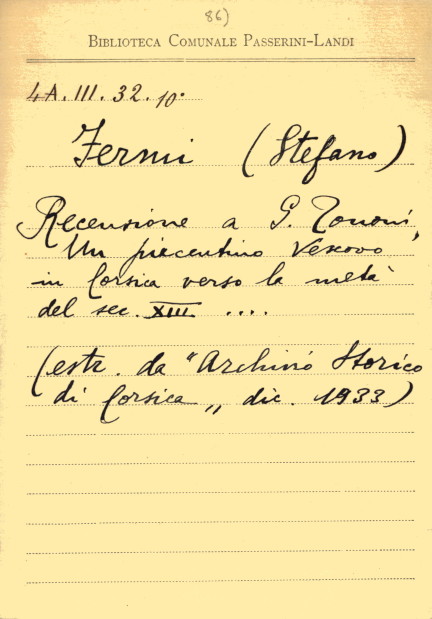 86)
BIBLIOTECA COMUNALE PASSERINI-LANDI
4A.III.32.10º
Fermi (Stefano)
Recensione a G. Tononi,
Un piacentino Vescovo
in Corsica verso la metà
del sec. XIII ....
(estr. da "Archivio Storico
di Corsica„ dic. 1933)